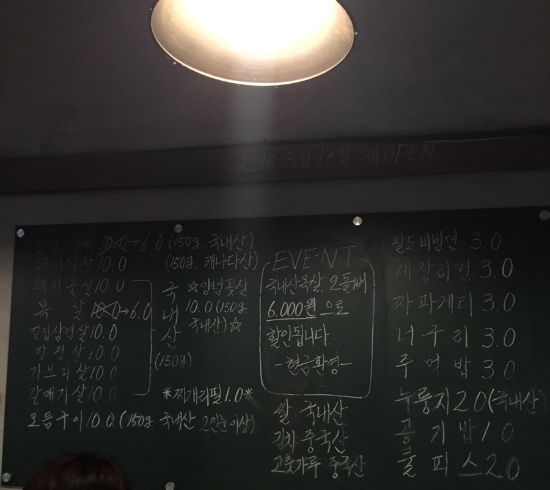 2015. 3월 13일 재OPEN
10.0→6.0 (150g. 국내산)
10.0 (150g. 캐나다산)
돼지목살 10.0
목 살 10.0→6.0
살 10.0
살 10.0
가브리살 10.0
갈매기살 10.0
국내산
(150g)
☆안녕꽃살
10.0 (150g.
국내산)☆
*찌개리필 1.0*
모듬구이 10.0 (150g 국내산 2인분이상)
EVENT
국내산목살, 오돌뼈
6.000원으로
할인됩니다.
-현금환영-
쌀 국내산
김치 중국산
고춧가루 중국산
팔도비빔면 3.0
해장라면 3.0
짜파게티 3.0
너구리 3.0
주먹밥 3.0
누룽지 2.0 (국내산)
공기밥 1.0
쿨피스 2.0